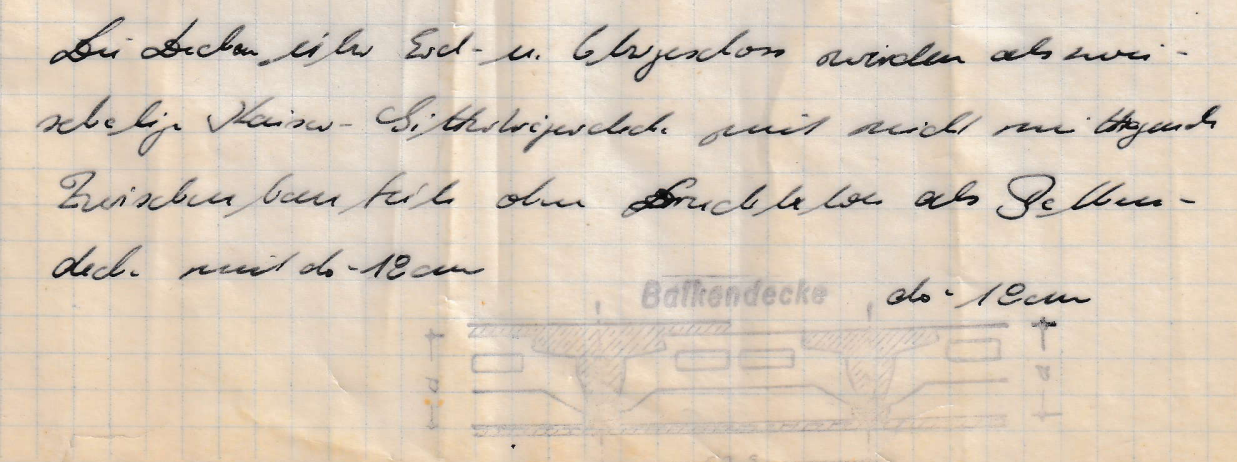 Die Decken über Erd- u. Obergeschoss werden als zwei-
schalige Kaiser-Gitterträgerdecke mit nicht mittragende
Zwischenbauteile ohne Druckbeton als Balken-
decke mit do-12cm
Balkendecke do-12cm
d d